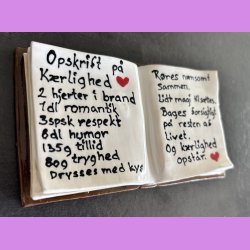 Opskrift på
Kærlighed
2 hjerter i brand
1dl romantik
3spsk respekt
8dl humor
135g tillid
80g tryghed
Drysses med kys
Røres nænsomt
Sammen.
Lidt magi tilsættes.
Bages forsigtigt
på resten af
Livet.
Og kærlighed
opstår.